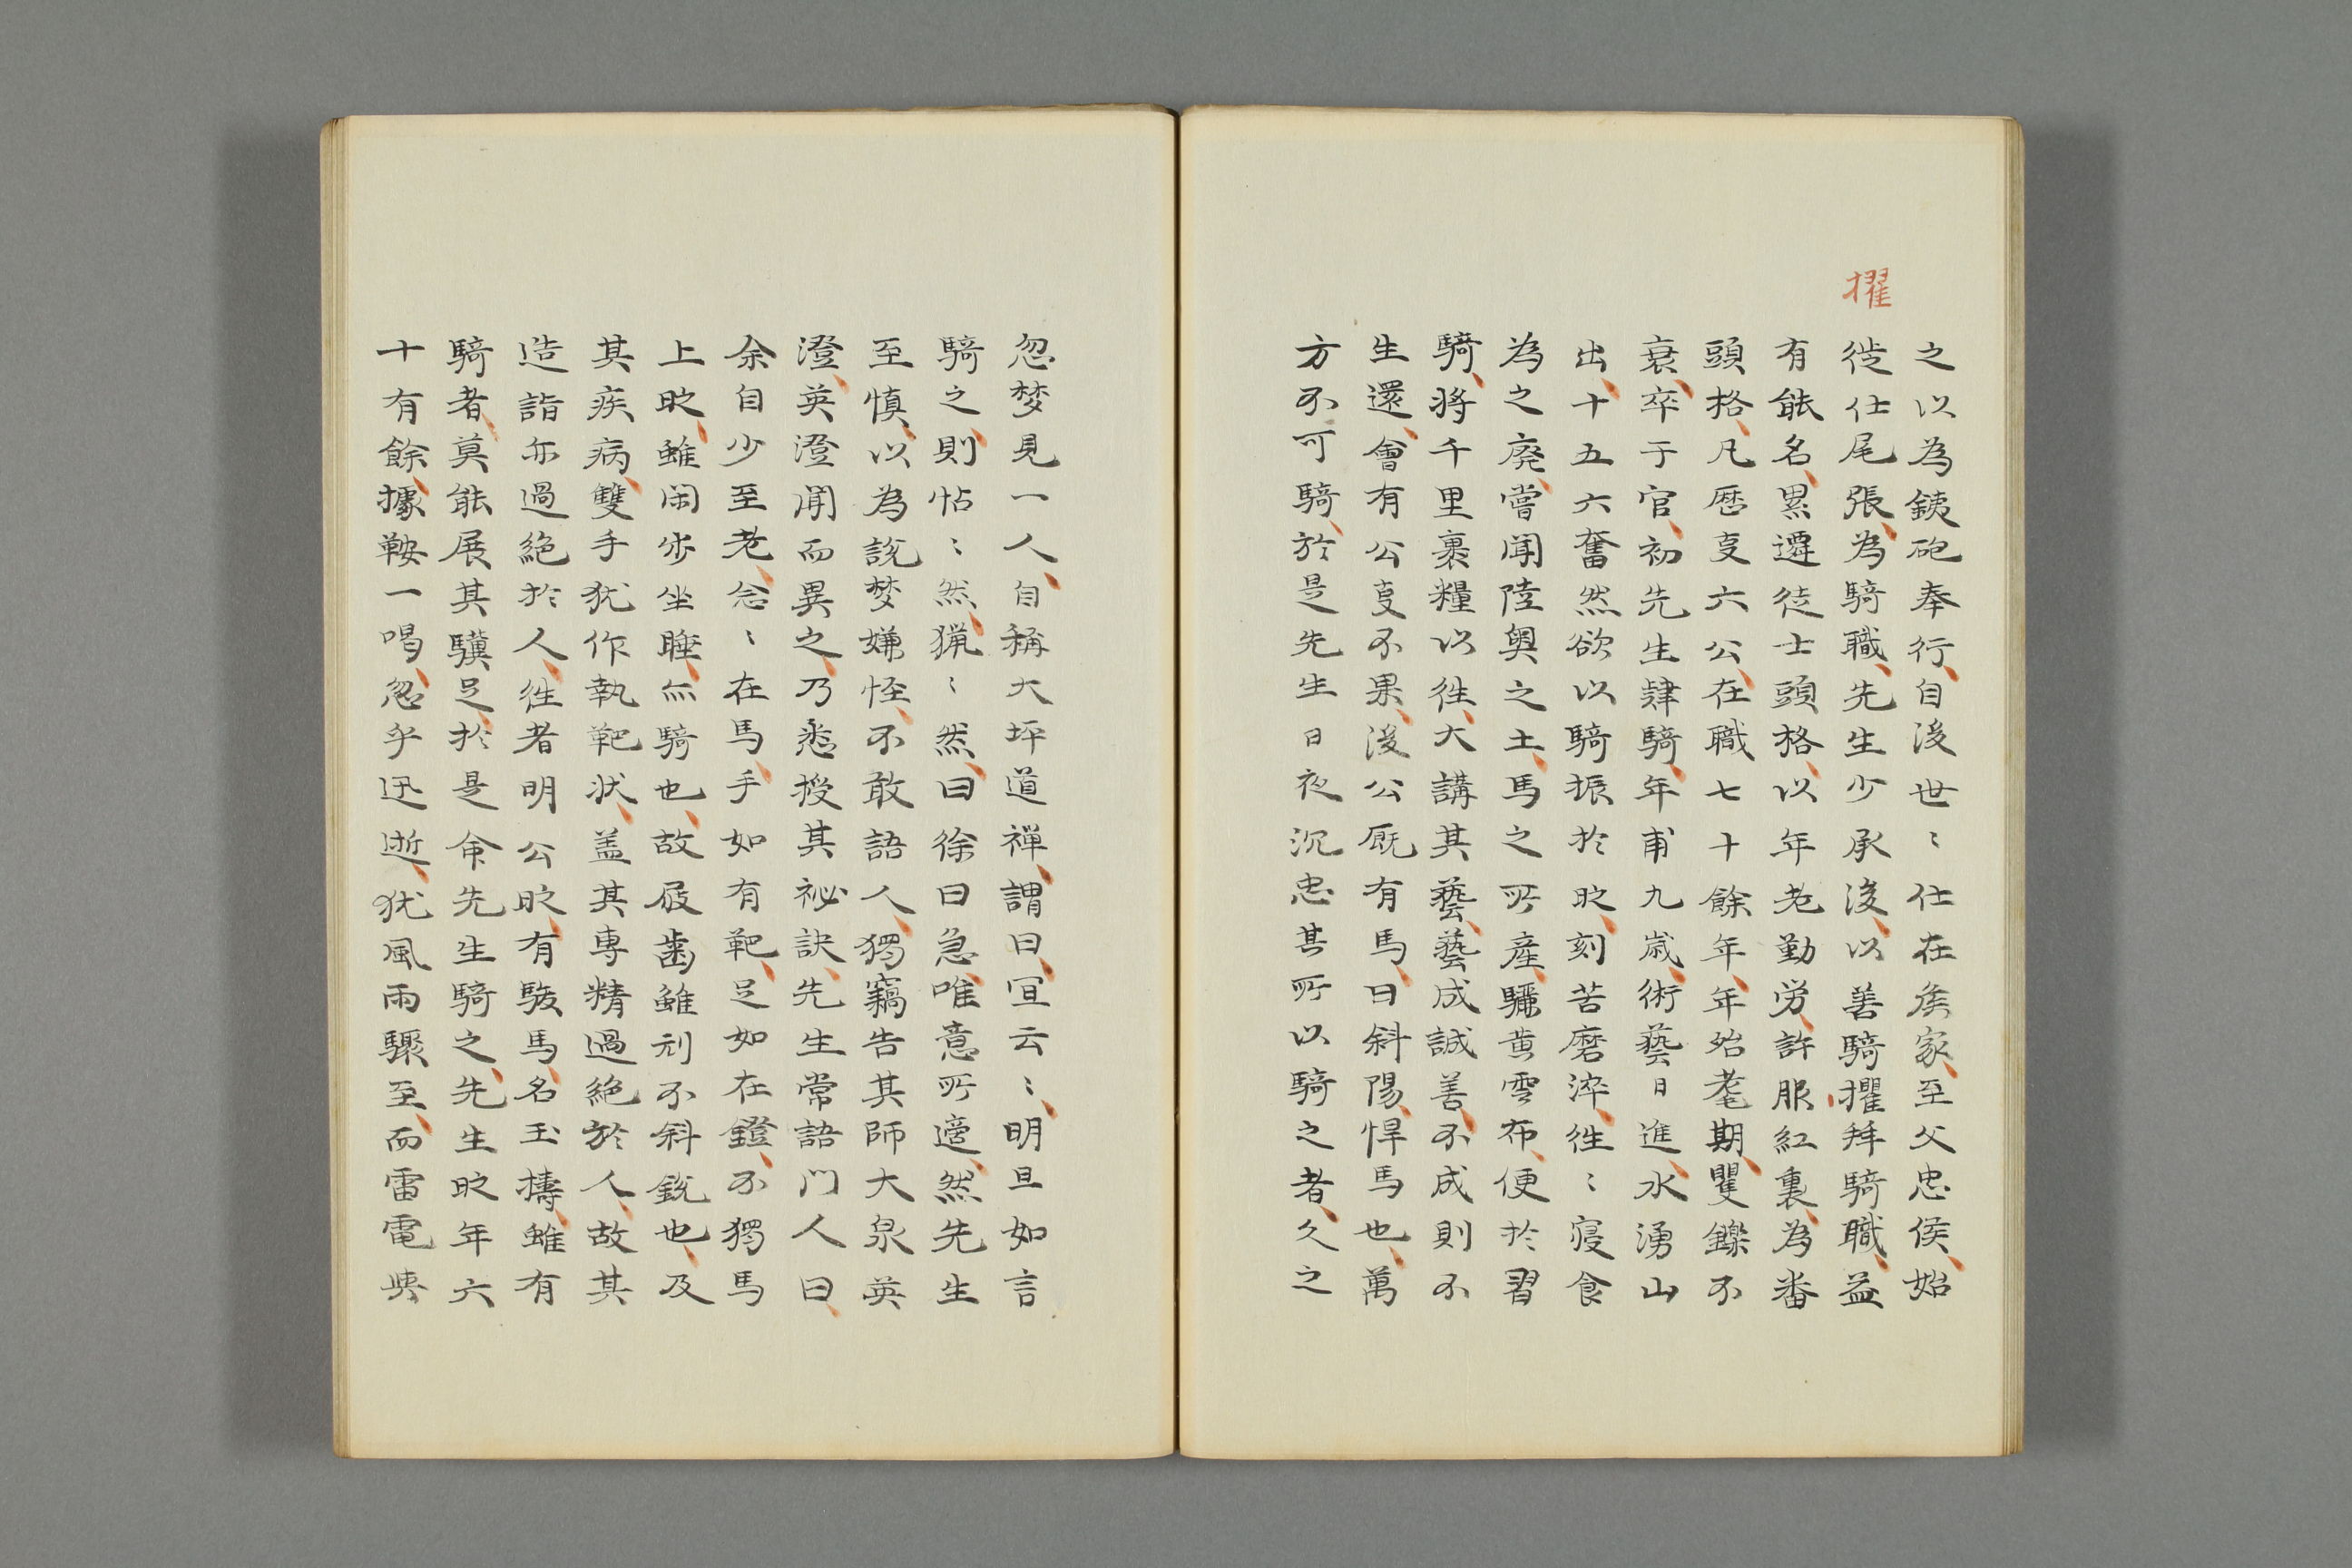 擢
之以為銕砲奉行、自後世〻仕在矦家、至父忠侯、始
徙仕尾張、為騎職、先生少承後、以善騎擢拜騎職、益
有能名、累遷徒士頭格、以年老勤労、許服紅裏、為番
頭格、凡歴事六公、在職七十餘年、年殆耄期、矍鑠不
衰、卒于官、初先生肄騎、年甫九歳、術藝日進、水湧山
出、十五六奮然欲以騎振於時、刻苦磨淬、徃〻寝食
為之廃、嘗聞陸奥之土、馬之所産、驪黄雲布、便於習
騎、將千里裹糧以徃、大講其藝、藝成誠善、不成則不
生還、會有公事不果、後公厩有馬、曰斜陽、悍馬也、萬
方不可騎、於是先生日夜沉思其所以騎之者、久之
忽梦見一人、自稱大坪道禅、謂曰、宜云〻、明旦如言
騎之、則怗〻然、猟〻然、曰徐曰急、唯意所適、然先生
至慎、以為説梦嫌怪、不敢語人、獨竊告其師大泉英
澄、英澄聞而異之、乃悉授其祕訣、先生常語門人曰、
余自少至老、念〻在馬、手如有靶、足如在鐙、不獨馬
上時、雖閑歩坐睡、亦騎也、故屐歯雖利不斜銳也、及
其疾病、雙手犹作執靶状、盖其専精過絶於人、故其
造詣亦過絶於人、徃者明公時、有駿馬、名玉擣、雖有
騎者、莫能展其驥足、於是命先生騎之、先生時年六
十有餘、據鞍一喝、忽乎迅逝、犹風雨驟至、而雷電與